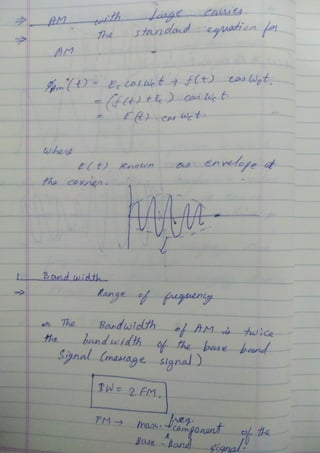 ⇒ AM with Large carries
⇒ The standard equation for
AM -
(t) = Ec cos Wct + f(t) cos Wct.
= (f(t) + Ec) cos Wct.
= E(t) cos wct.
where
E(t) known as envelope of
the carrier.
1. Bandwidth
⇒ Range of frequency
The Bandwidth of AM is twice
the bandwidth of the base band
Signal (message signal)
BW = 2 FM.
FM → max. freq. component of the
Base-Band signal.